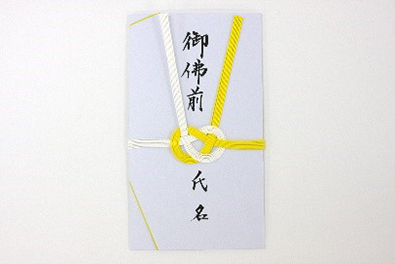 御佛前
氏名